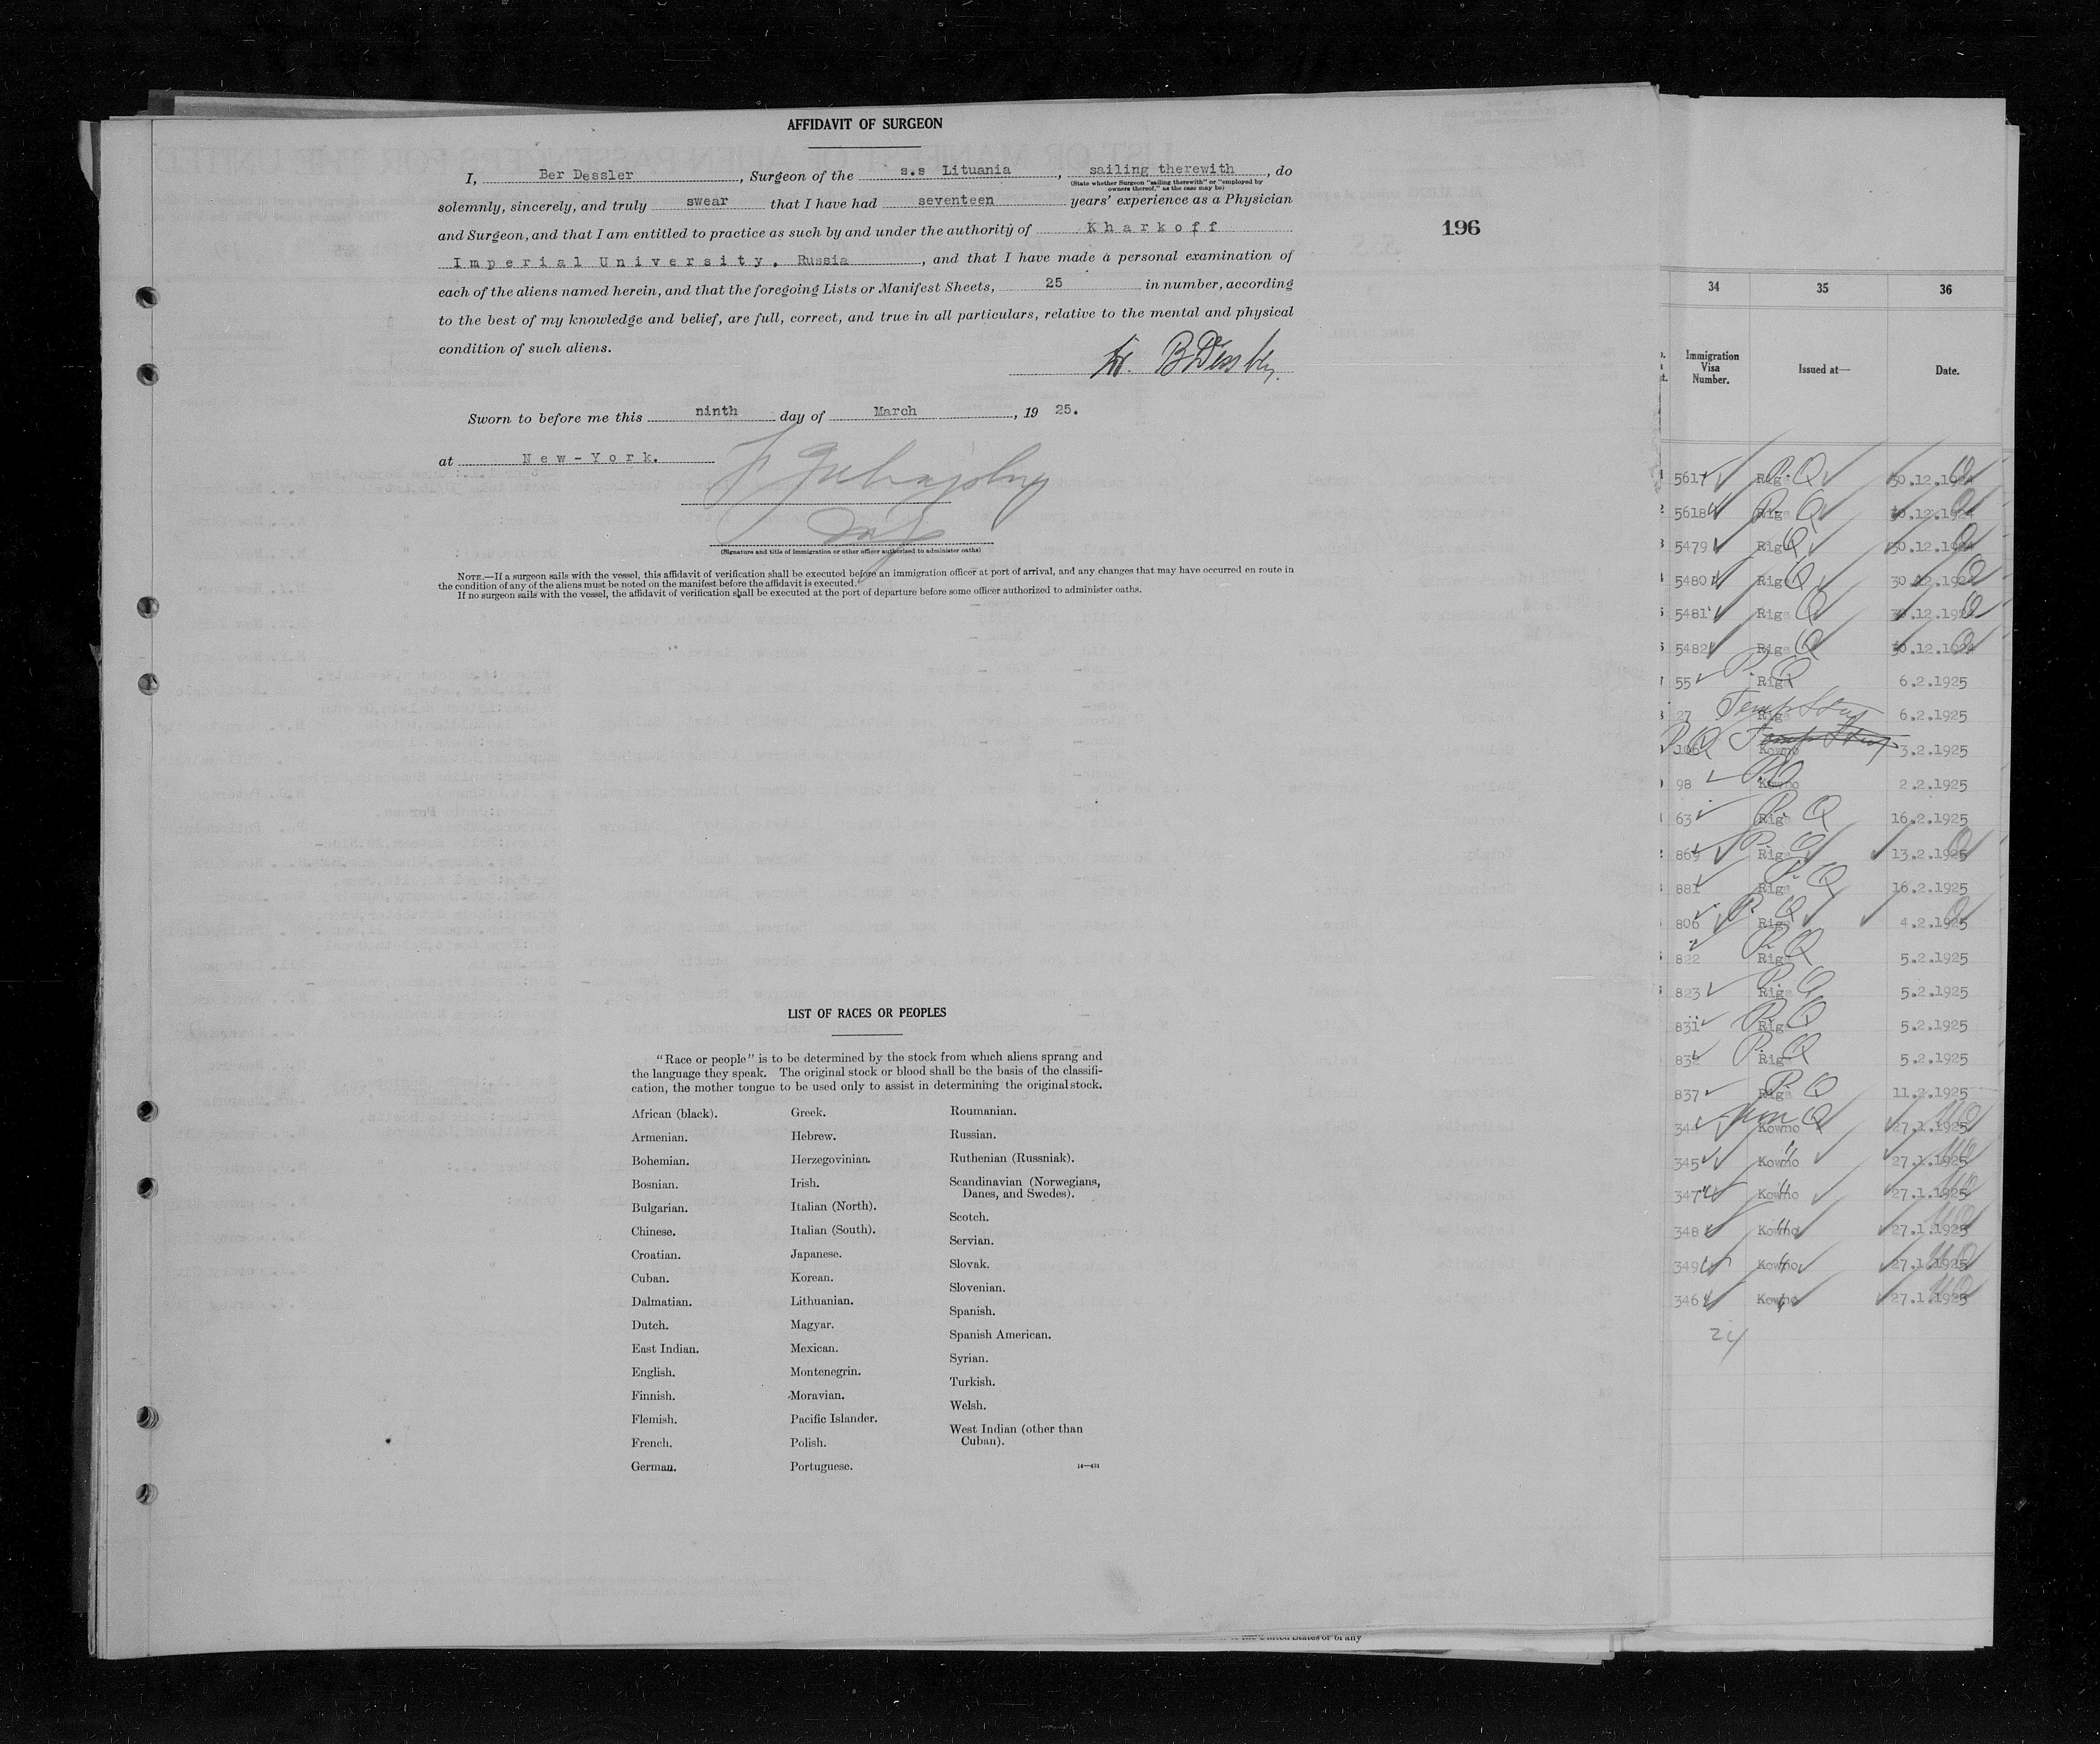 AFFIDAVIT OF SURGEON
I, Ber Dessler, Surgeon of the s.s Lituania, sailing therewith, do
(State whether Surgeon "sailing therewith" or "employed by
owners thereof," as the case may be)
solemnly, sincerely, and truly swear that I have had seventeen years' experience as a Physician
and Surgeon, and that I am entitled to practice as such by and under the authority of Kharkoff
Imperial University, Russia, and that I have made a personal examination of
each of the aliens named herein, and that the foregoing Lists or Manifest Sheets, 25 in number, according
to the best of my knowledge and belief, are full, correct, and true in all particulars, relative to the mental and physical
condition of such aliens.
Dr. B Dessler
Sworn to before me this ninth day of March, 19 25.
at New-York.
(Signature and title of immigration or other officer authorized to administer oaths)
NOTE.—If a surgeon sails with the vessel, this affidavit of verification shall be executed before an immigration officer at port of arrival, and any changes that may have occurred en route in
the condition of any of the aliens must be noted on the manifest before the affidavit is executed.
If no surgeon sails with the vessel, the affidavit of verification shall be executed at the port of departure before some officer authorized to administer oaths.
196
LIST OF RACES OR PEOPLES
"Race or people" is to be determined by the stock from which aliens sprang and
the language they speak. The original stock or blood shall be the basis of the classifi-
cation, the mother tongue to be used only to assist in determining the original stock.
African (black).
Armenian.
Bohemian.
Bosnian.
Bulgarian.
Chinese.
Croatian.
Cuban.
Dalmatian.
Dutch.
East Indian.
English.
Finnish.
Flemish.
French.
German.
Greek.
Hebrew.
Herzegovinian.
Irish.
Italian (North).
Italian (South).
Japanese.
Korean.
Lithuanian.
Magyar.
Mexican.
Montenegrin.
Moravian.
Pacific Islander.
Polish.
Portuguese.
Roumanian.
Russian.
Ruthenian (Russniak).
Scandinavian (Norwegians,
Danes, and Swedes).
Scotch.
Servian.
Slovak.
Slovenian.
Spanish.
Spanish American.
Syrian.
Turkish.
Welsh.
West Indian (other than
Cuban).
34 35 36
Immigration
Visa
Number.
Issued at—
Date.
5617 Riga Q 30.12.1924
5618 Riga Q 30.12.1924
5479 Riga Q 30.12.1924
5480 Riga Q 30.12.1924
5481 Riga Q 30.12.1924
5482 Riga Q 30.12.1924
55 Riga 6.2.1925
27 Riga 6.2.1925
106 Kowno 3.2.1925
98 Kowno 2.2.1925
63 Riga Q 16.2.1925
869 Riga 13.2.1925
881 Riga Q 16.2.1925
806 Riga 4.2.1925
822 Riga Q 5.2.1925
823 Riga 5.2.1925
831 Riga Q 5.2.1925
832 Riga Q 5.2.1925
837 Riga Q 11.2.1925
344 Kowno 27.1.1925
345 Kowno 27.1.1925
347 Kowno 27.1.1925
348 Kowno 27.1.1925
349 Kowno 27.1.1925
346 Kowno 27.1.1925
24